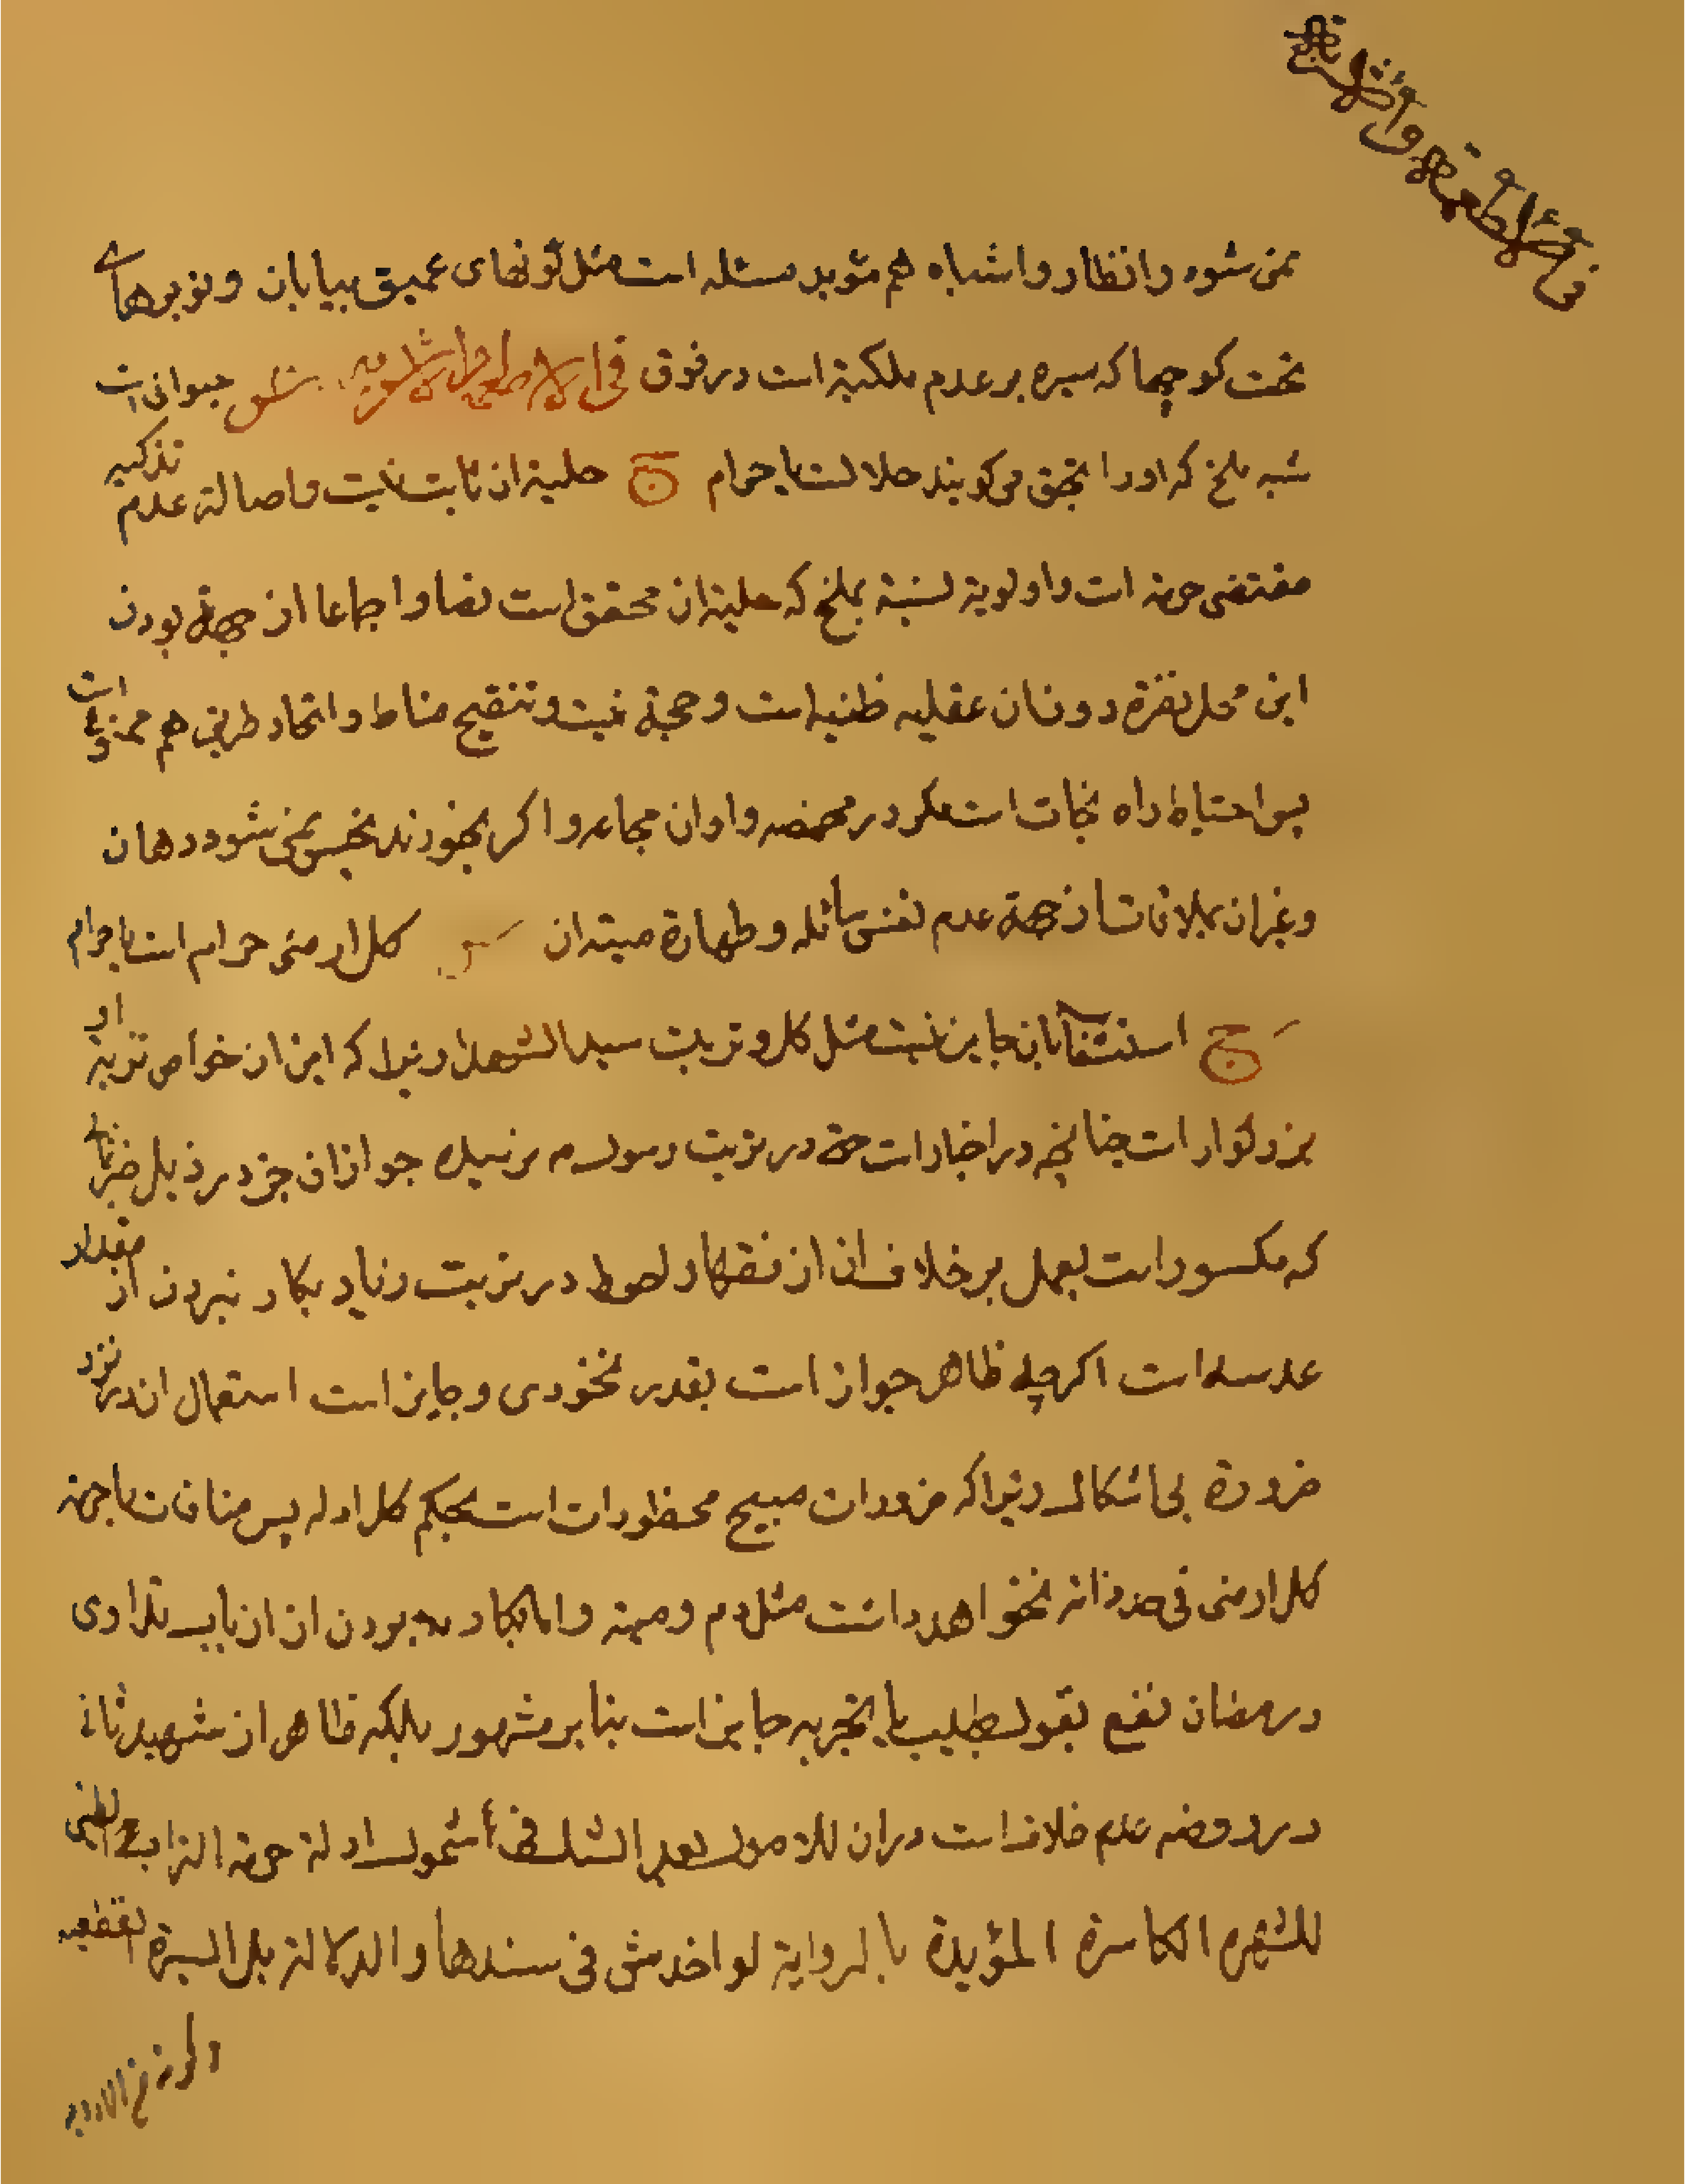 فی مسائل اطعمه و اشربه
نمی شود و انظار و اشباه هم مؤید مسئله است مثل تونهای عمیق بیابان و نوبرهای
تحت کوچها که سیره بر عدم ملکیة است در فوق فی الاطعمه و الاشربه س حیوانی است
شبه ملخ که او را می کویند حلالست یا حرام ج حلیة ان ثابت نیست و اصالة عدم تذکیه
مقتضی حرمة است و اولویة نسبة بملخ که حلیة ان محقق است نصا و اجماعا از جهة بودن
این محل نفرة دونان عقلیه ظنیه است و حجة نیست و تنقیح مناط و اتحاد طریق هم ممنوع است
پس احتیاط راه نجات است مکر در مخمصه و اوان مجاعه و اکر بخورند نجس نمی شود دهان
و غیر ان بملاقات از جهة عدم نفس سائله و طهارة میته ان س کل ارمنی حرام است یا حرام
ج استشفا بان جایز نیست مثل کل و تربت سید الشهدا زیرا که این از خواص تربة ان
بزرکوار است چنانچه در اخبار است حتی در تربت رسول م نرسیده جواز ان جز در ذیل خبر
که مکسور است بعمل بر خلاف ان از فقها و احوط در تربت زیاد بکار نبردن از مقدار
عدسه است اکرچه ظاهر جواز است بقدر نخودی و جایز است استعمال ان در نزد
ضرورة بی اشکال زیرا که ضرورات مبیح محظورات است بحکم کل ادله پس منافات با حرمة
کل ارمنی فی حد ذاته نخواهد داشت مثل دم و میته و اما بکار بردن از ان از باب تداوی
در مضان نفع بقول طبیب یا بتجربه جایز است بنا بر مشهور بلکه ظاهر از شهید ثانی
در روضه عدم خلاف است در ان للاصول بعد الشک فی شمول ادلة حرمة التراب و الطین
للشهرة الکاسرة المؤیدة بالروایة لو اخدش فی سندها و الدلالة بل السیرة القطعیه